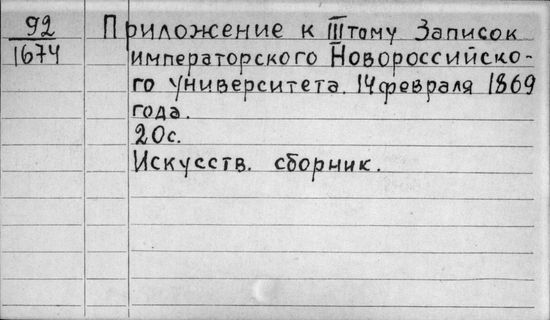 92
1674
Приложение к III тому Записок
императорского Новороссийско-
го университета. 14 февраля 1869
года.
20с.
Искусств. сборник.